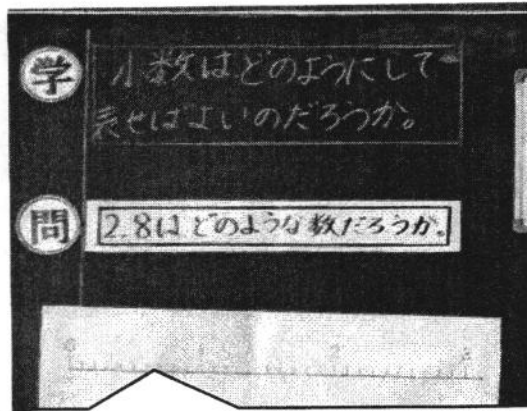 学
小数はどのようにして
表せばよいのだろうか。
問
2.8はどのような数だろうか。
0 1 2 3